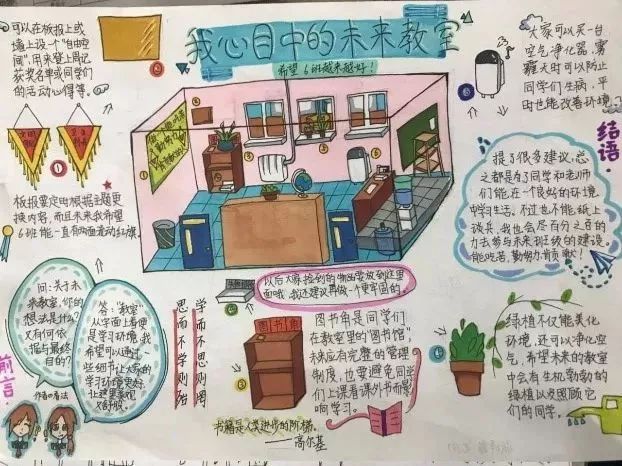 我心目中的未来教室
希望6班越来越好!
可以在板报上或
墙上设一个"自由空
间",用来登上周记
获奖名单或同学们
的活动心得等。
②
①
板报要定时根据主题更
换内容,而且未来我希望
6班能一直有两面流动红旗。
大家可以买一台
空气净化器,雾
霾天时可以防止
同学们生病,平
时也能改善环境。
结语:
提了很多建议,总
之都是为了同学和老师
们能在一个良好的环境
中学习生活。不过也不能纸上
谈兵,我也会尽百分之百的
力去参与未来班级的建设。
能吃苦,勤努力,肯贡献!
以后大家捡到的物品要放到这里
面哦,我还建议再做一个更牢固的。
前言:
问:关于未
来教室,你的
想法是什么?
又有何依
据与最终
目的?
答:"教室"
从字面上看便
是学习环境,我
希望可以通过一
些细节让大家的
学习环境更好,
让这里美观
又舒服。
作者の看法
学而不思则罔
思而不学则殆
图书角
③
图书角是同学们
在教室里的"图书馆",
未来应有完整的管理
制度,也要避免同学
们上课看课外书而影
响学习。
书籍是人类进步的阶梯。
——高尔基
④
绿植不仅能美化
环境,还可以净化空
气,希望未来的教室
中会有生机勃勃的
绿植以及照顾它
们的同学。